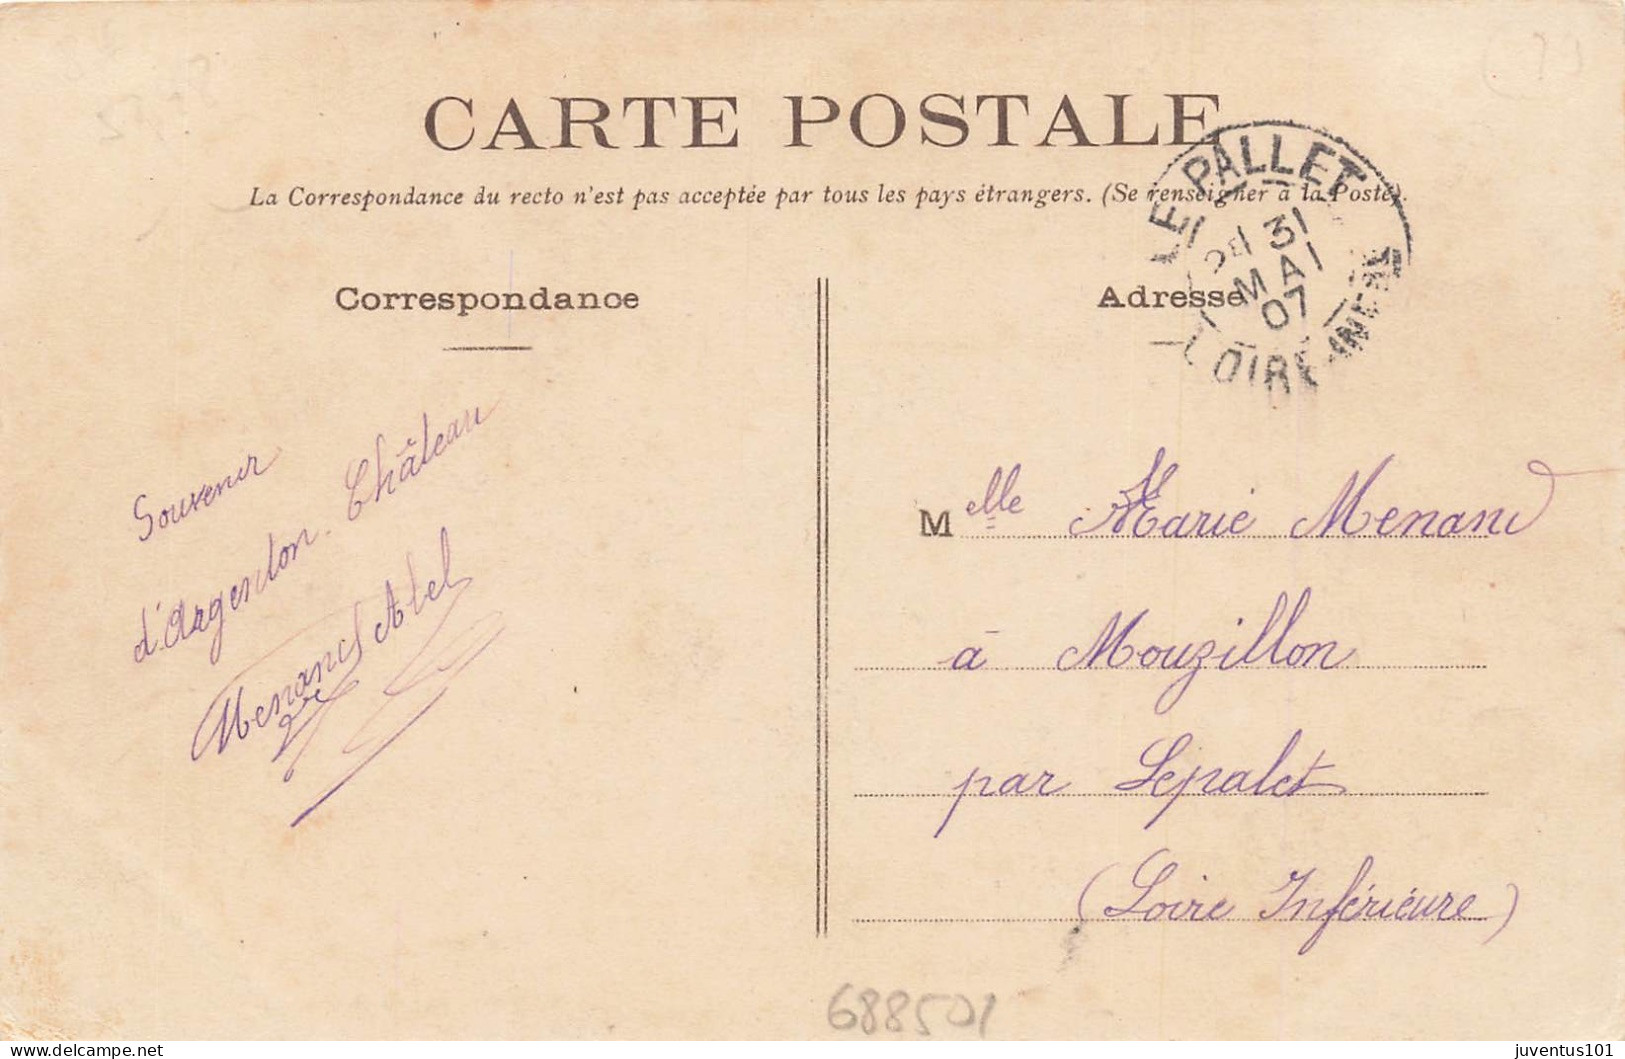 CARTE POSTALE
La Correspondance du recto n'est pas acceptée par tous les pays étrangers. (Se renseigner à la Poste).
LE PALLET
31
MAI
07
LOIRE-INFRE
Correspondance
Adresse
Souvenir
d'Argenton-Château
Menand Abel
Melle Marie Menand
à Mouzillon
par Lepalet
(Loire Inférieure)
688501
juventus101